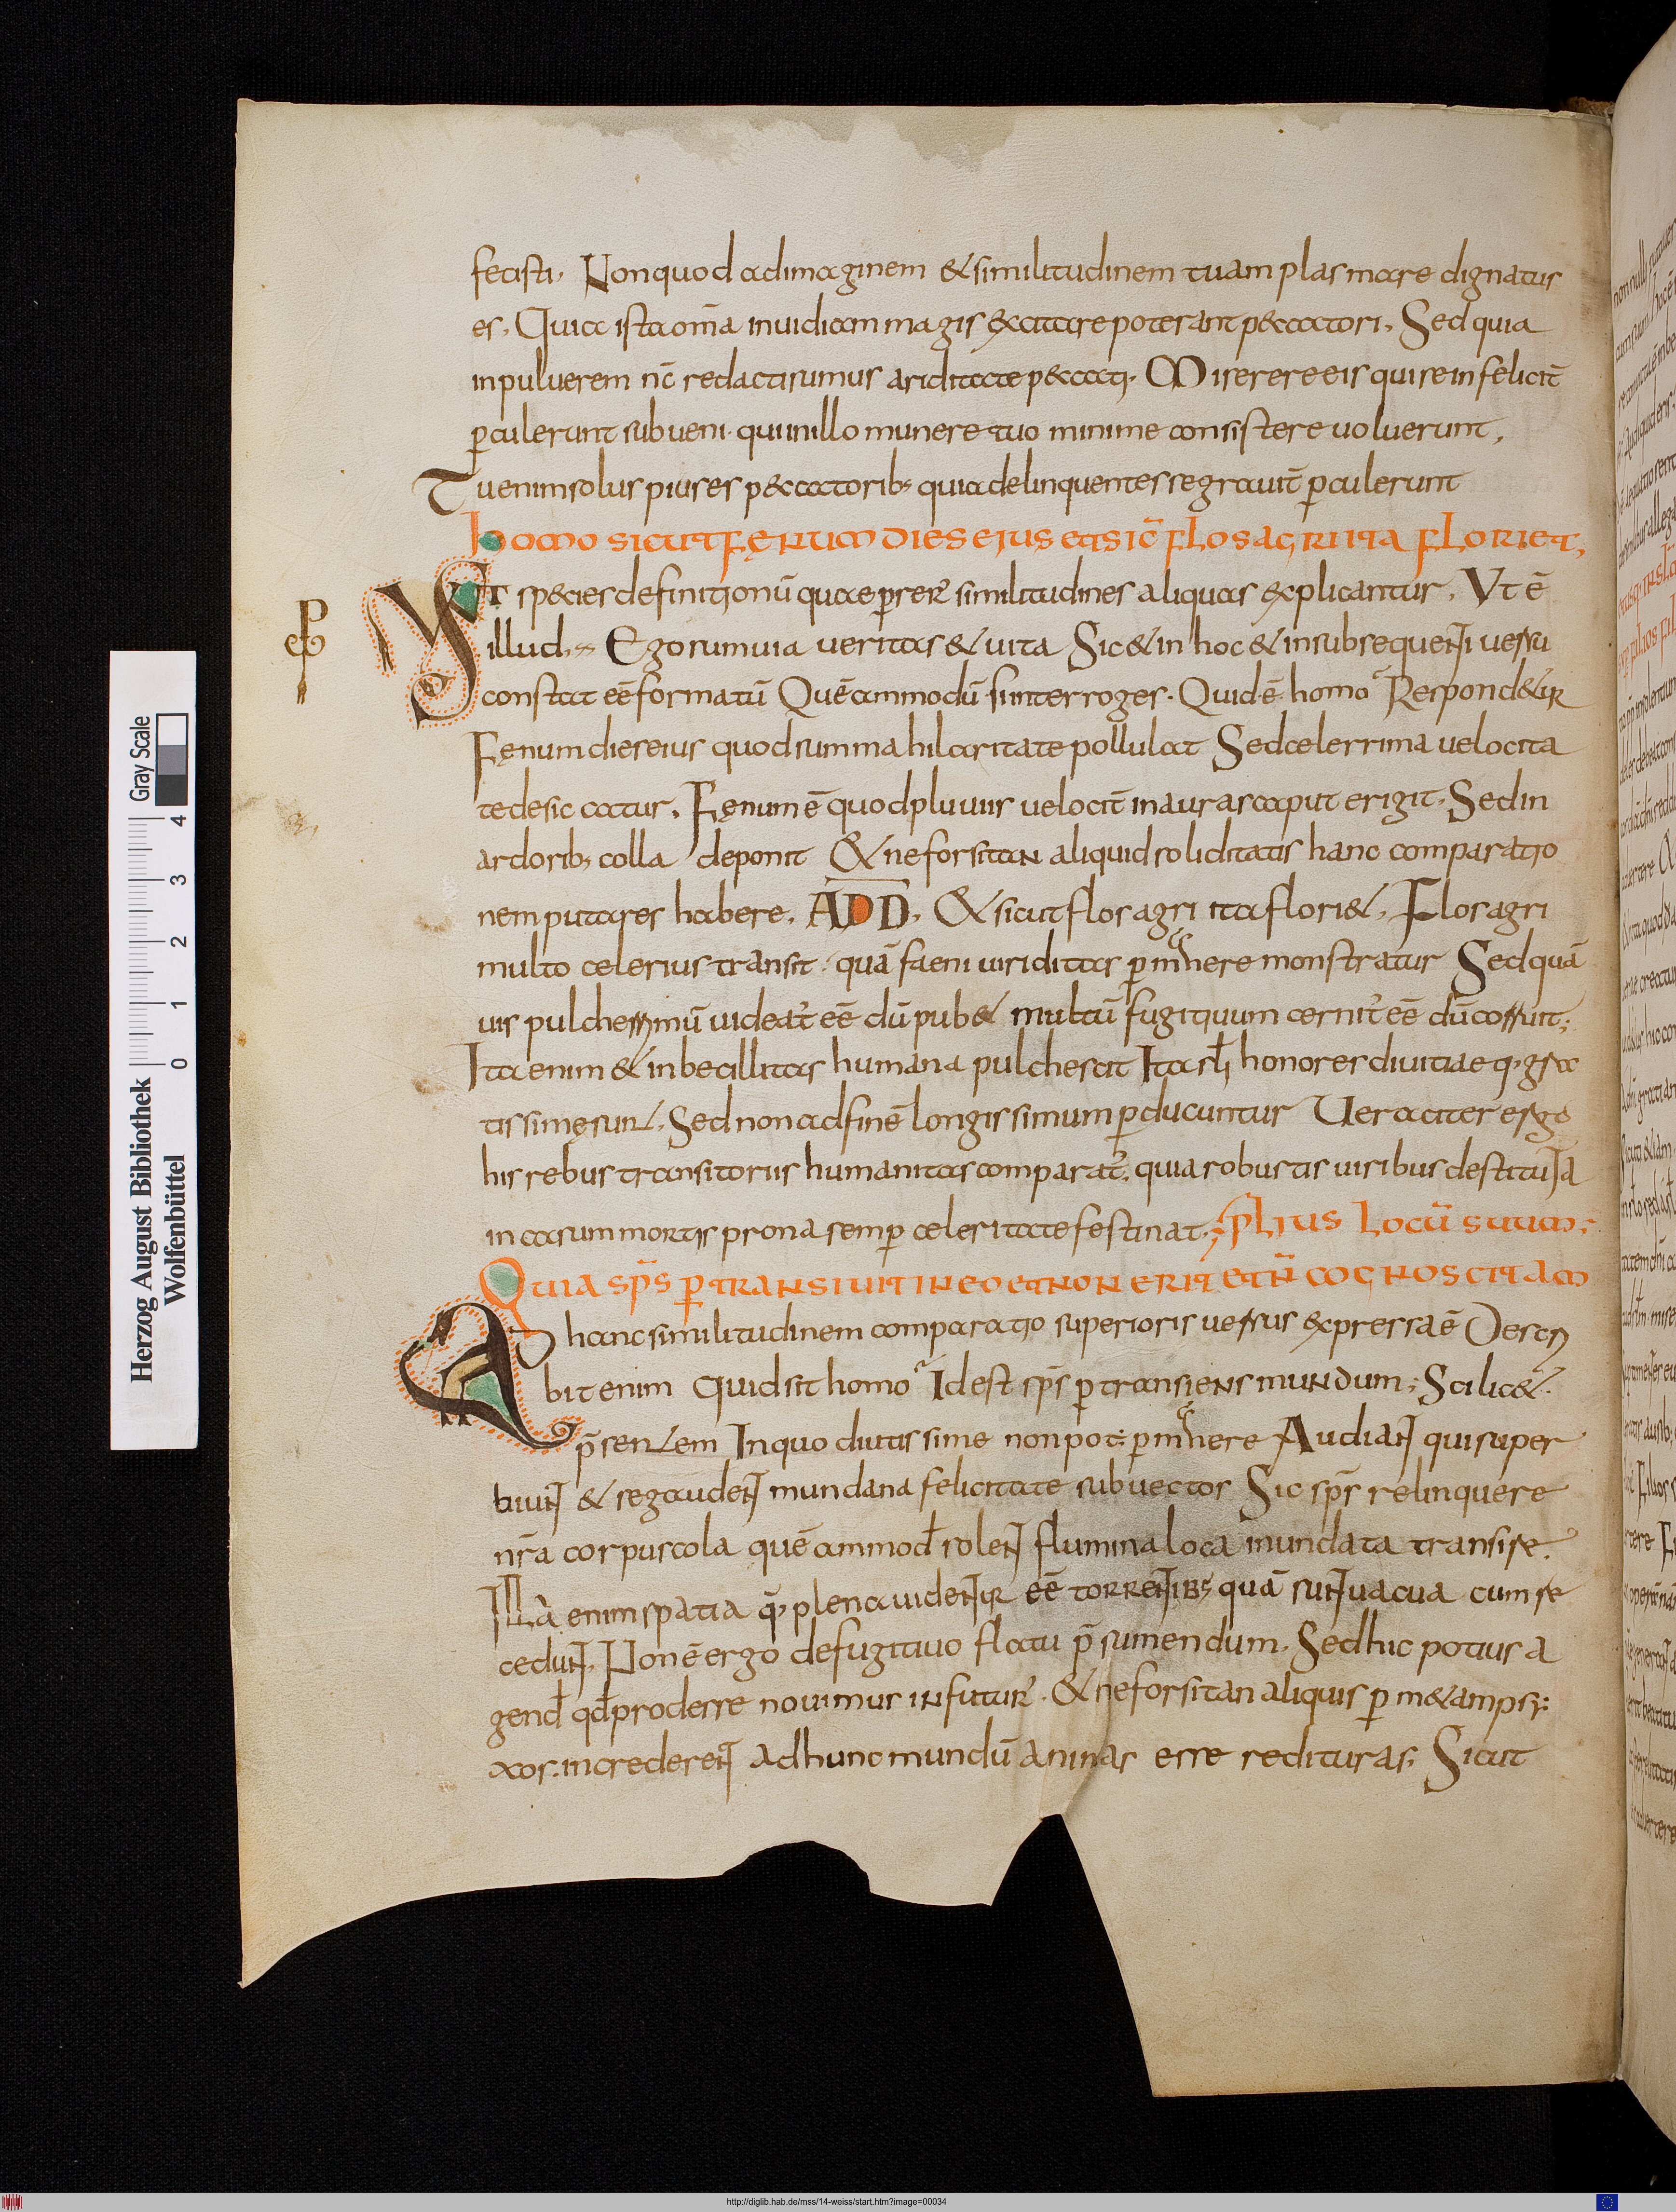 fecisti. Non quod ad imaginem & similitudinem tuam plasmare dignatus
es. Quia ista om̄a inuidiam magis excitare poterant p&catori. Sed quia
in puluerem nc̄ redacti sumus ariditate p&cati. Miserere eis qui se infelicit̄
ꝑculerunt subueni. qui in illo munere tuo minime consistere uoluerunt.
Tu enim solus pius es p&catorib; quia delinquentes se grauit̄ ꝑculerunt
homo sicut fęnum dies ejus et sic̄ flos agri ita floriet.
Vt species definitionū quae ꝑ ser̄ similitudines aliquas explicantur. Vt ē
illud. Ego sum uia ueritas & uita Sic & in hoc & in subsequenti uersu
constat eē formatū Quēammodū si interroges. Quid ē homo Respond&ur
Fęnum dies eius quod summa hilaritate pollulat Sed celerrima uelocita
te desiccatur. Fęnum ē quod pluuiis uelocit̄ in auras caput erigit. Sed in
ardorib; colla deponit & ne forsitan aliquid soliditatis hanc comparatio
nem putares habere. ADD. & sicut flos agri ita flori&. Flos agri
multo celerius transit. quā faeni uiriditas ꝑmanere monstratur Sed quā
uis pulcherrimū uideat̄ eē dū pub& multū fugiquum cernit̄ eē dū corruit;
Ita enim & inbecillitas humana pulchescit Ita sī honores diuitiaeq; gra
tissimę sunt. Sed non ad finē longissimum ꝑducuntur Ueraciter ergo
his rebus transitoriis humanitas comparat̄. quia robustis uiribus destituta
in casum mortis prona semꝑ celeritate festinat. plius locū suum;
Quia sp̄s ꝑtransiuit in eo et non erit et n̄ cognoscit am
Ad hanc similitudinem comparatio superioris uersus expressa ē Descri
bit enim quid sit homo Id est sp̄s ꝑtransiens mundum; Scilic&.
p̄sentem In quo diutissime non pot: ꝑmanere Audiant qui super
biunt & se gaudent mundana felicitate subuectos Sic sp̄s relinquere
nr̄a corpuscola quēammod̄ solent flumina loca inundata transire.
Illa enim spatia q̄; plena uidentur eē torrentib; quā sunt uacua cum re
cedunt. Non ē ergo de fugitiuo flatu p̄sumendum. Sed hic potius a
gend̄ qd̄ prodesse nouimus in futur̄. & ne forsitan aliquis ꝑ m&amps;
xos. in crederent ad hunc mundū animas esse redituras; Sicut
Herzog August Bibliothek
Wolfenbüttel
0 1 2 3 4
Gray Scale
http://diglib.hab.de/mss/14-weiss/start.htm?image=00034